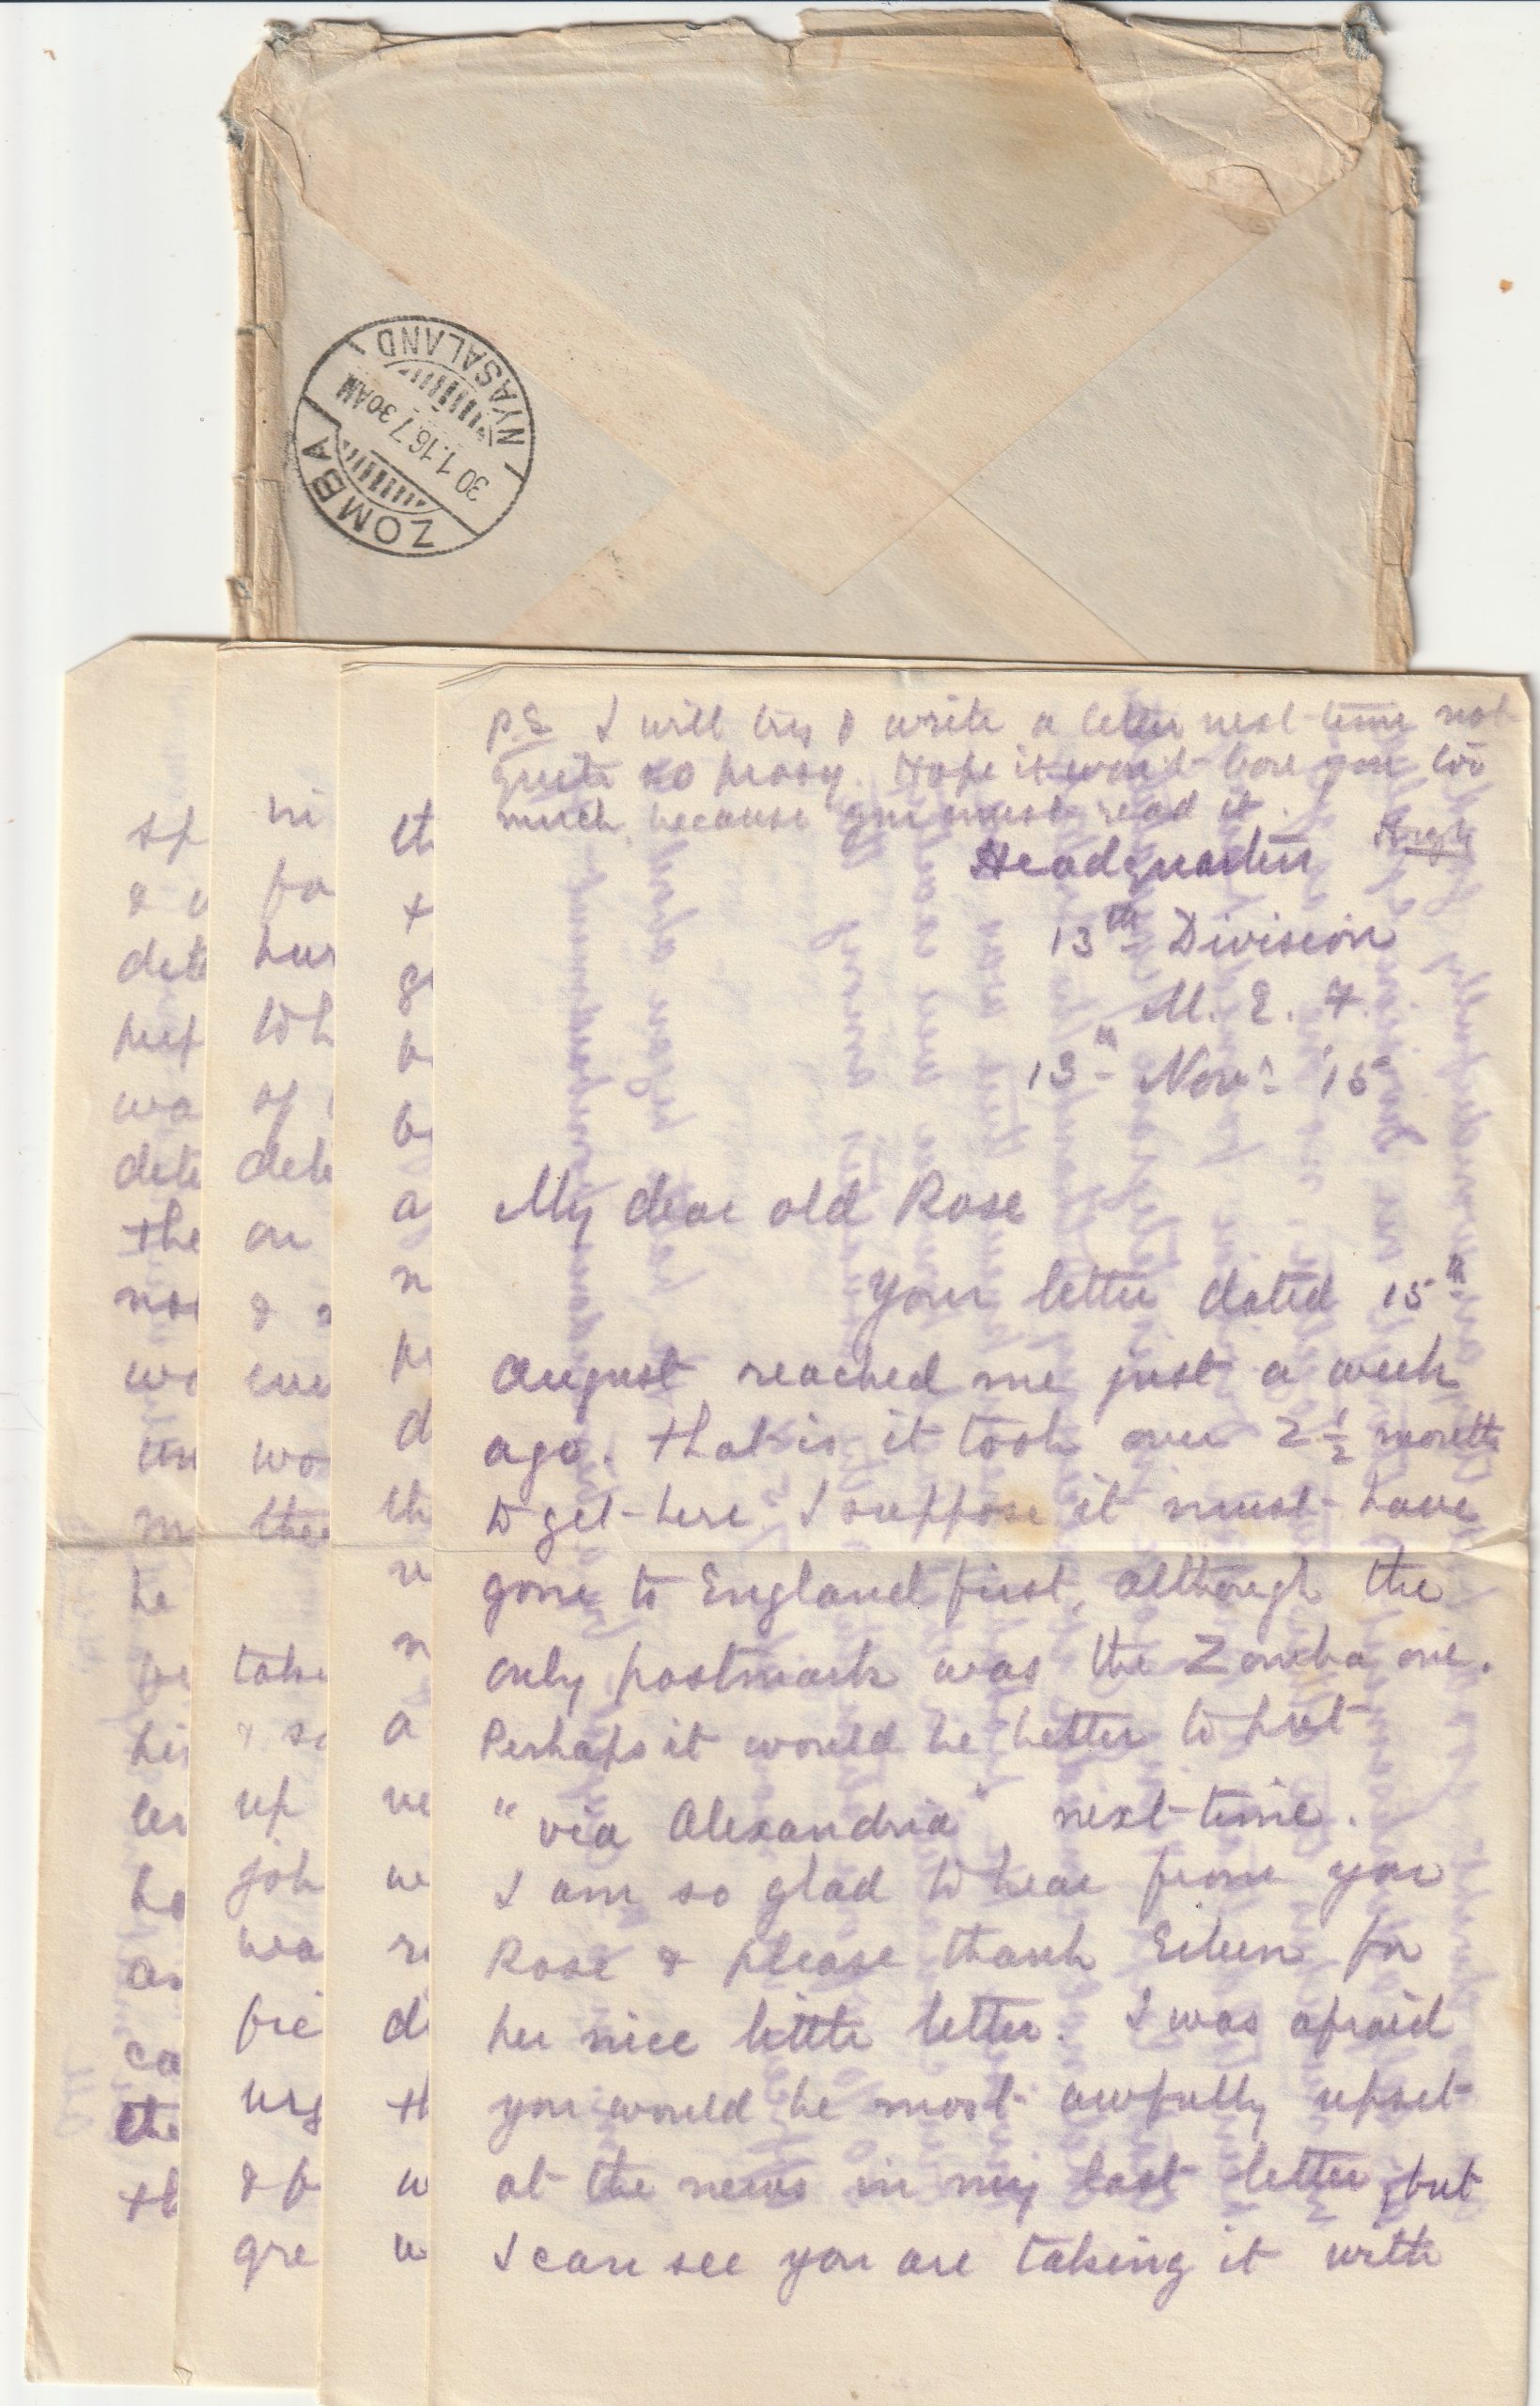 ZOMBA
30 1.16 7 30AM
NYASALAND
P.S. I will try & write a letter next time not
quite so prosy. Hope it won't bore you too
much because you must read it.
Hugh
Headquarters
13th Division
M. E. F.
13th Nov: '15
My dear old Rose
Your letter dated 15th
August reached me just a week
ago. That is it took over 2½ months
to get here I suppose it must have
gone to England first, although the
only postmark was the Zomba one.
Perhaps it would be better to put
"via Alexandria" next time.
I am so glad to hear from you
Rose & please thank Eileen for
her nice little letter. I was afraid
you would be most awfully upset
at the news in my last letter, but
I can see you are taking it with
th
+
d
th
a
ve
we
di
th
w
ni
fo
hur
Wh
of
dete
on
&
wo
thee
take
& so
up
job
wa
frie
urg
& f
gre
sp
&
dete
put
wa
dete
the
not
wo
un
he
his
ho
as
ca
the
th